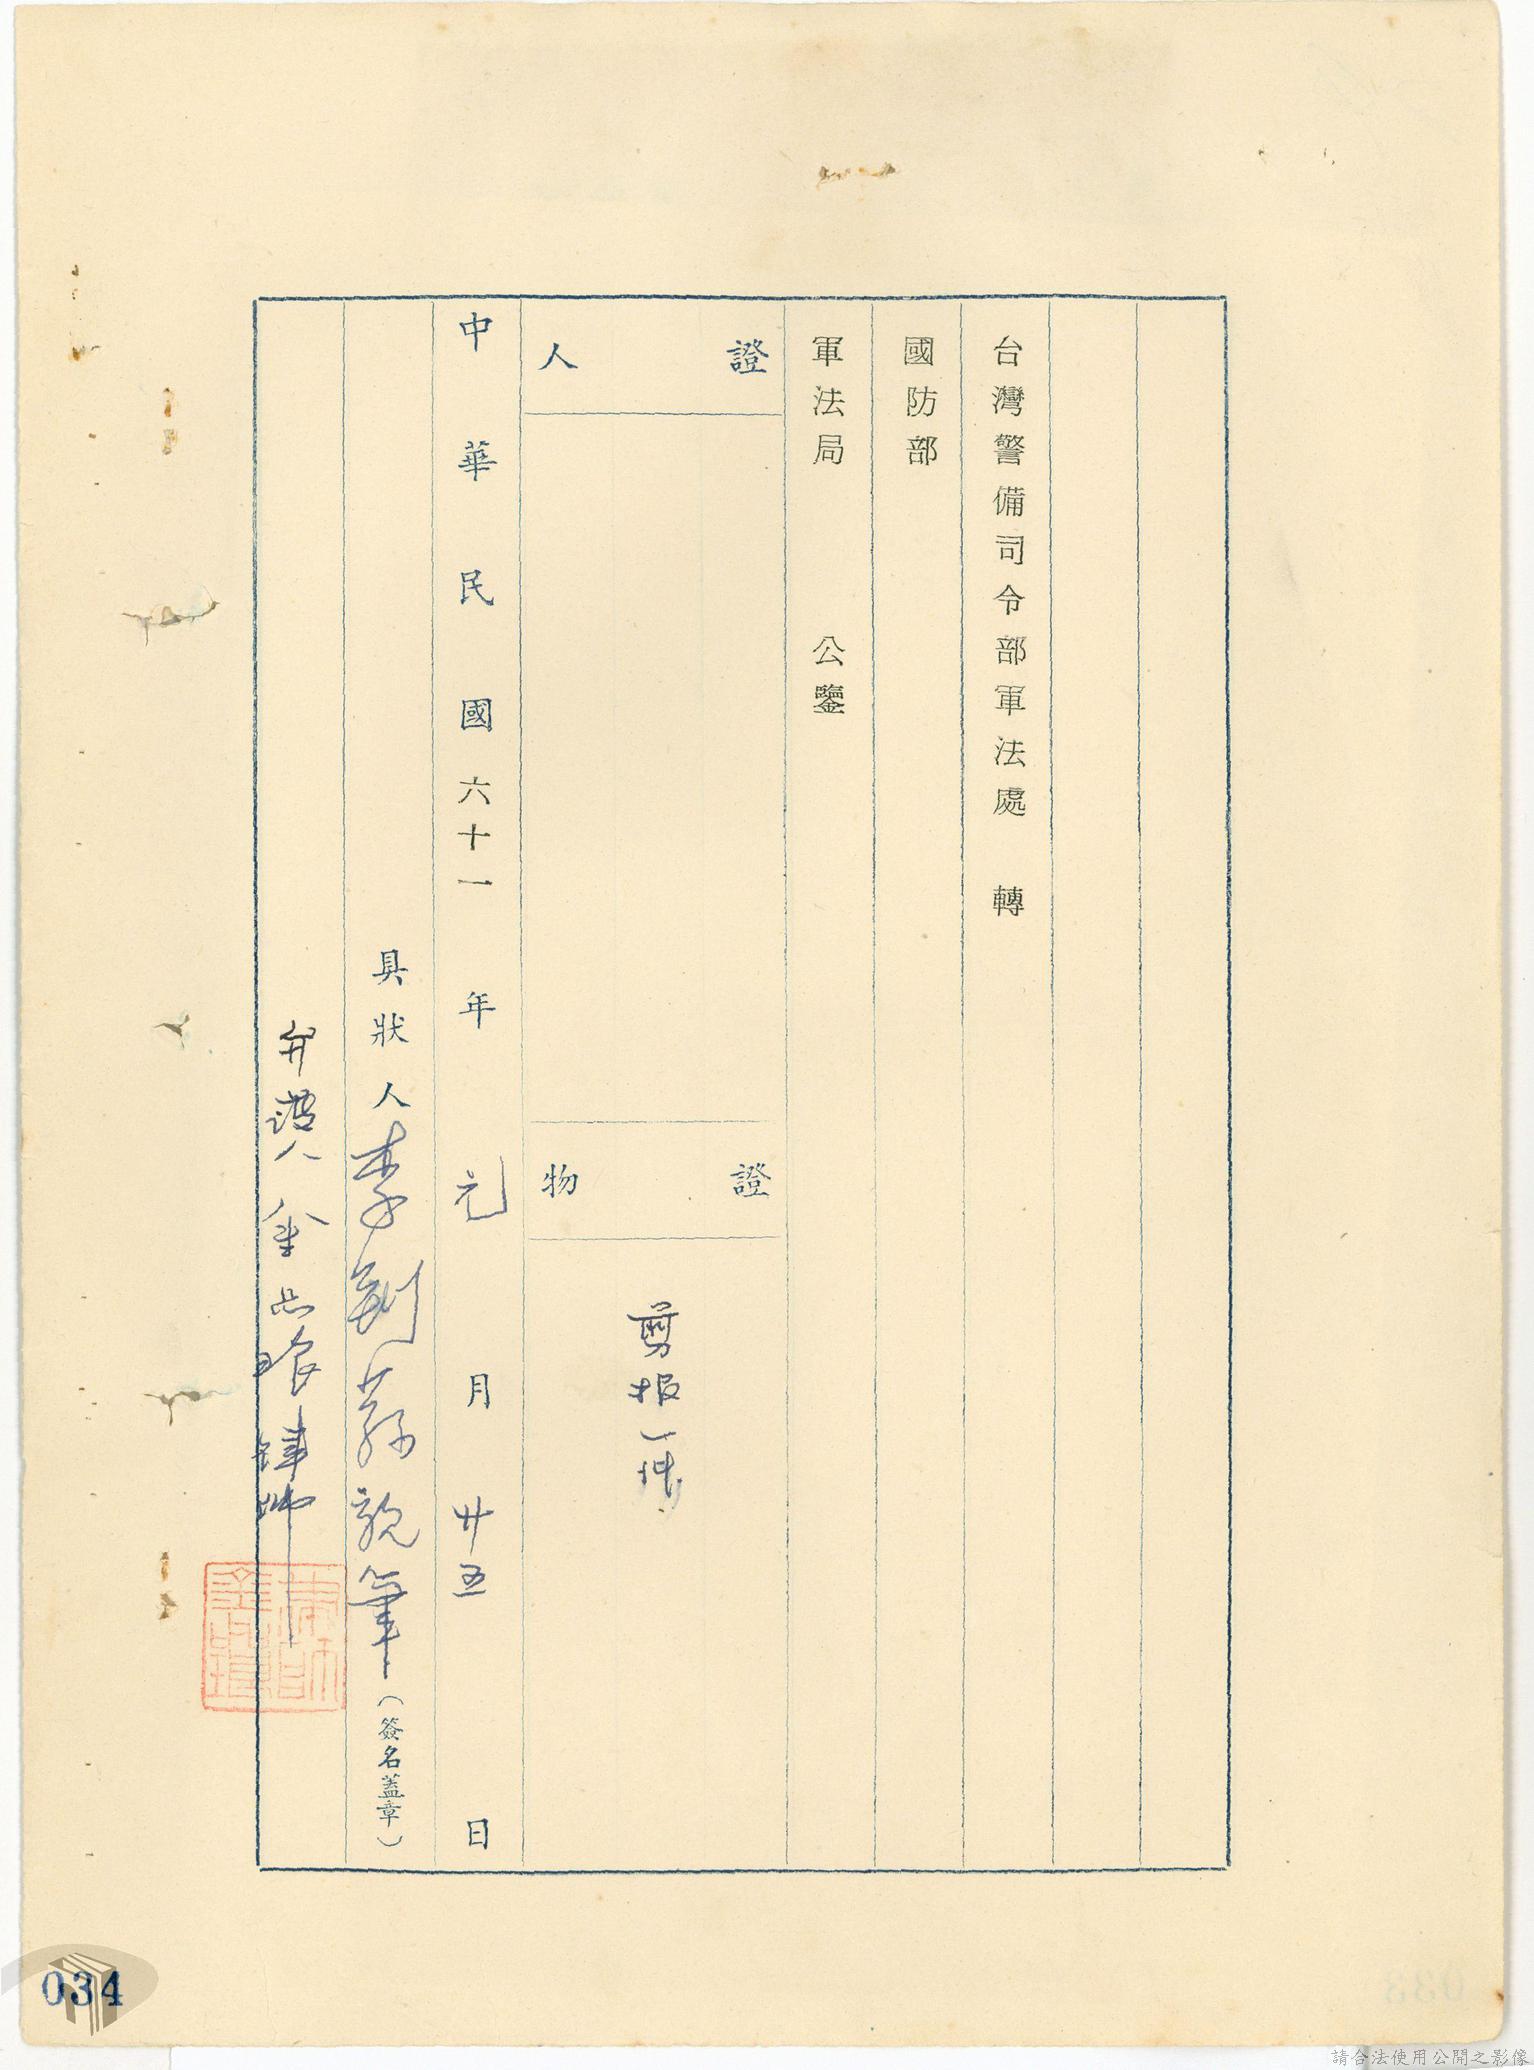 台灣警備司令部軍法處 轉
國防部
軍法局 公鑒
證人
證物
剪報一件
中華民國六十一年元月廿五日
具狀人 李荊蓀 親筆 (簽名蓋章)
弁護人 金品琅 律師
律師金品琅
034
請合法使用公開之影像